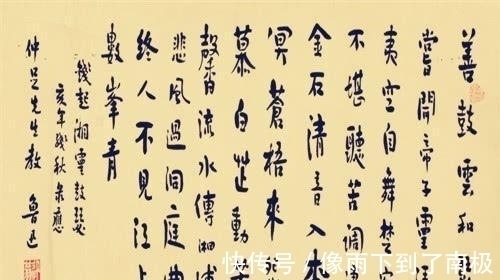 善鼓雲和
嘗聞帝子靈
夷空自舞楚
不堪聽苦調
金石清音入
冥蒼梧來
慕白芷動
馨香流水傳湘浦
悲風過洞庭曲
終人不見江上
數峯青
錢起湘靈鼓瑟
亥年殘秋录應
仲足先生教 魯迅
快传号 / 像雨下到了南极